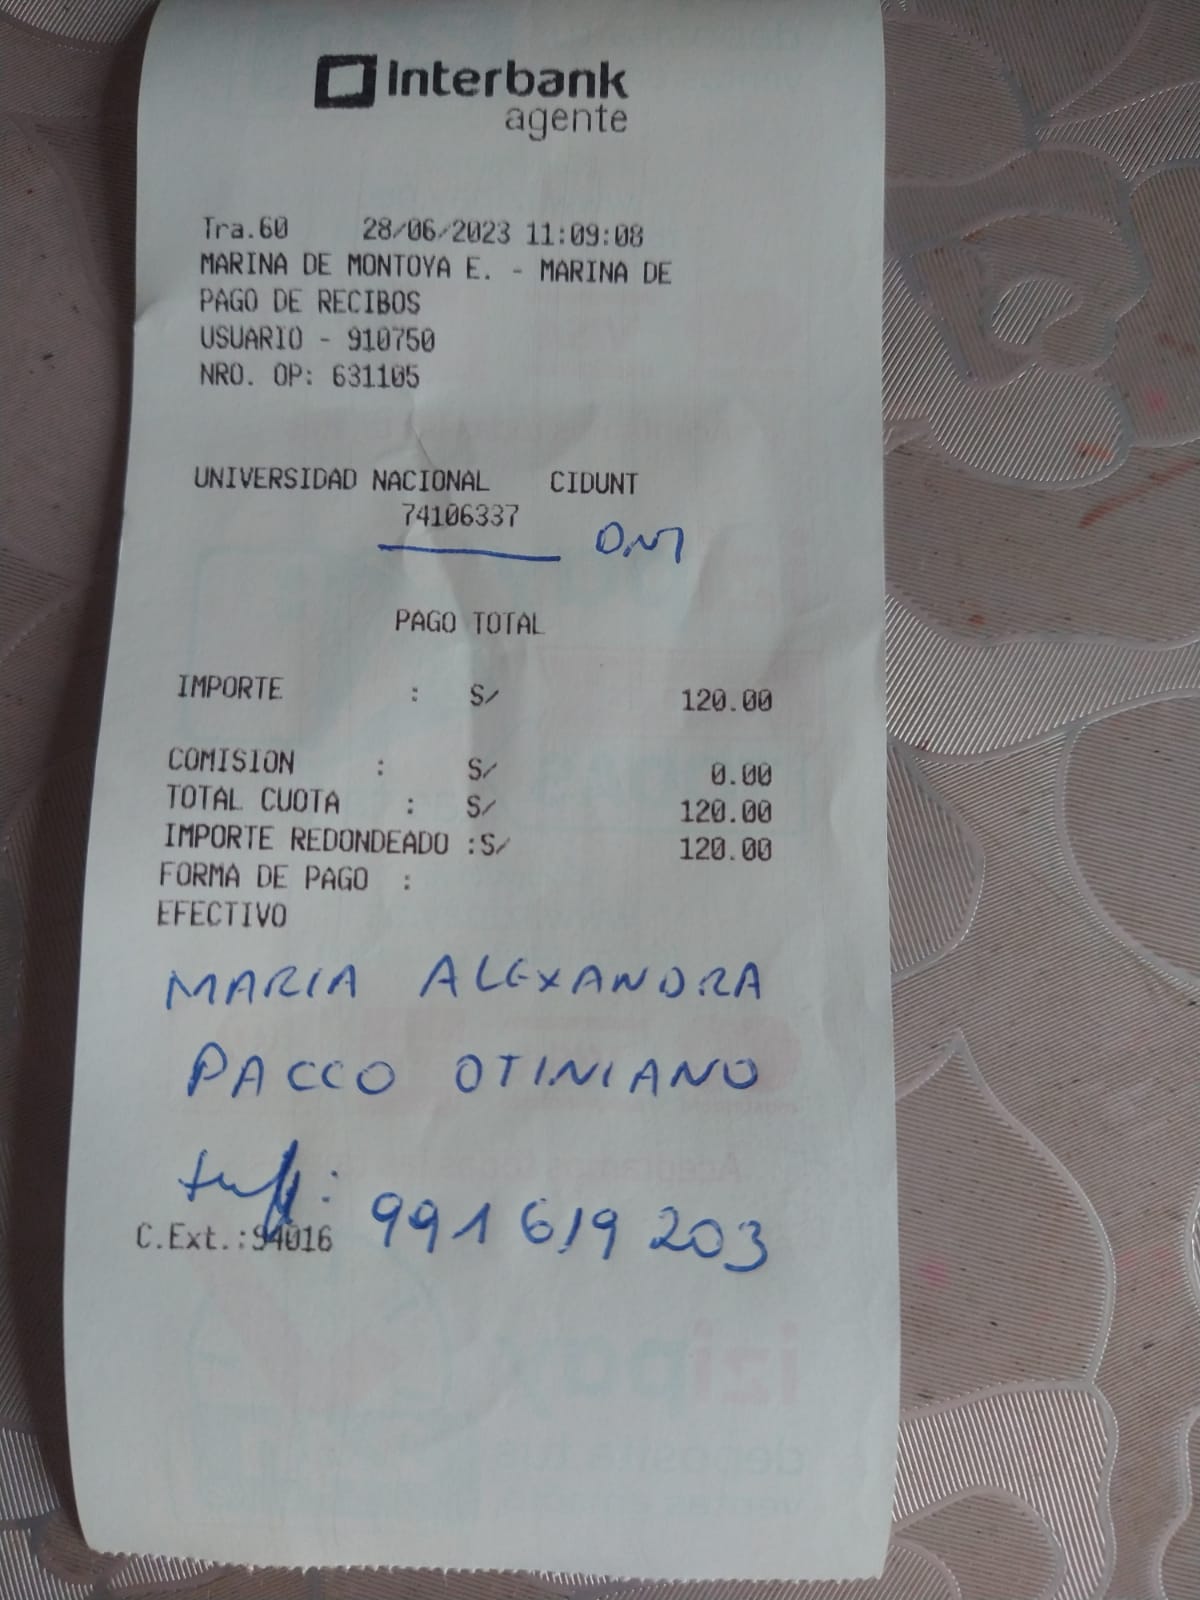 Interbank
agente
Tra.60 28/06/2023 11:09:08
MARINA DE MONTOYA E. - MARINA DE
PAGO DE RECIBOS
USUARIO - 910750
NRO. OP: 631105
UNIVERSIDAD NACIONAL CIDUNT
74106337
PAGO TOTAL
IMPORTE : S/ 120.00
COMISION : S/ 0.00
TOTAL CUOTA : S/ 120.00
IMPORTE REDONDEADO :S/ 120.00
FORMA DE PAGO :
EFECTIVO
MARIA ALEXANDRA
PACCO OTINIANO
C.Ext.:94016 991619203
izipay
deposita tus
ventas en